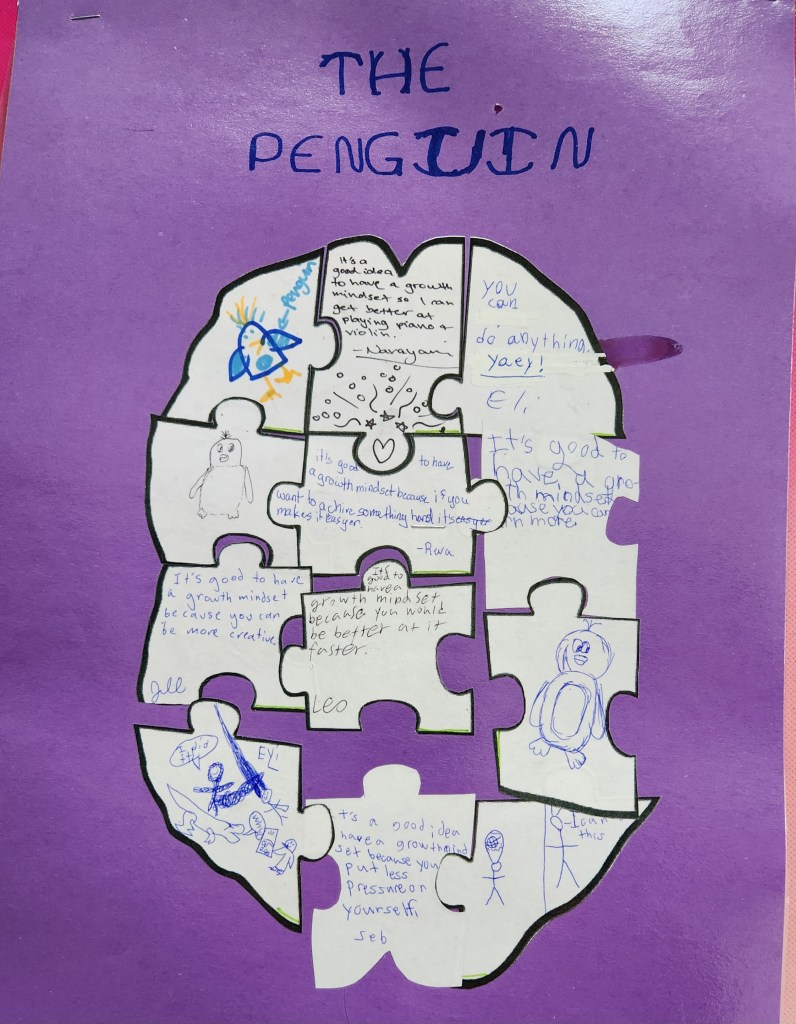 THE
PENGUIN
a-Penguin
It's a
good idea
to have a growth
mindset so I can
get better at
playing piano &
violin.
-Narayani
YOU
can
do anything.
Yaey!
Eli
it's good to have
a growth mindset because if you
want to achive something hard it's easyer
makes it easyer.
-Rwa
It's good to
have a gro
th mindset
ause you can
rn more.
It's good to have
a growth mindset
because you can
be more creative
It's
good to
have a
growth mindset
because you would
be better at it
faster.
Leo
I did
it!
EY!
t's a good idea
have a growthmind
set because you
put less
pressure on
yourself.
Seb
-I can
this